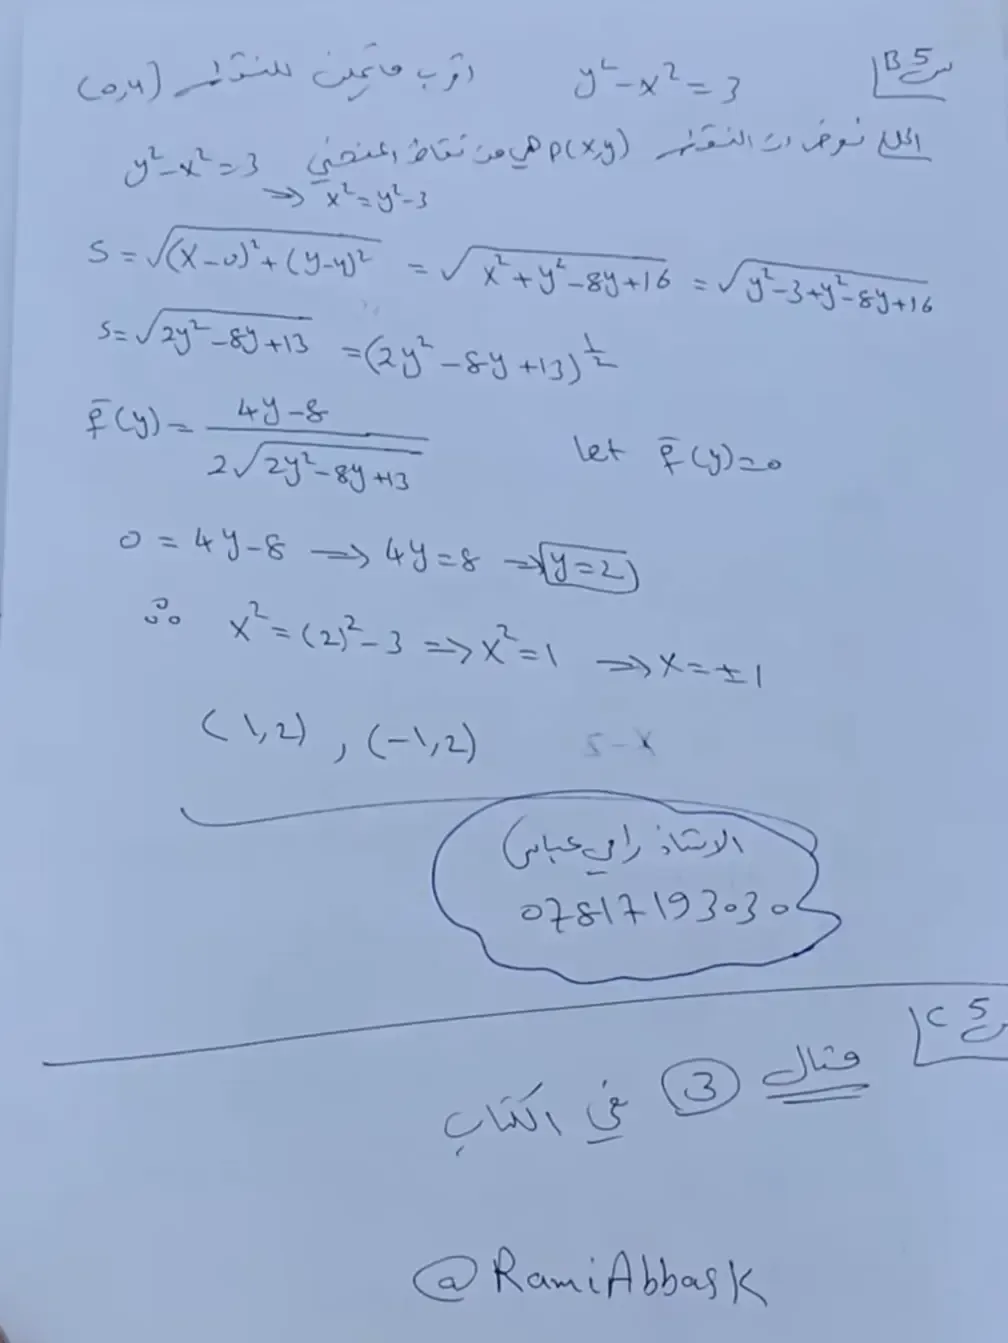 س5 B y²-x²=3 اقرب مايمكن للنقطة (0,4)
الحل نفرض ان النقطة p(x,y) هي من نقاط المنحني y²-x²=3
⇒ x²=y²-3
S=√((x-0)²+(y-4)²) = √(x²+y²-8y+16) = √(y²-3+y²-8y+16)
S=√(2y²-8y+13) =(2y²-8y+13)^(1/2)
f̄(y)= (4y-8)/(2√(2y²-8y+13)) let f̄(y)=0
0 = 4y-8 ⇒ 4y=8 ⇒ y=2
∴ x²=(2)²-3 ⇒ x²=1 ⇒ x=±1
(1,2) , (-1,2)
الاستاذ رامي عباس
07817193030
س5 C
مثال 3 في الكتاب
@RamiAbbask